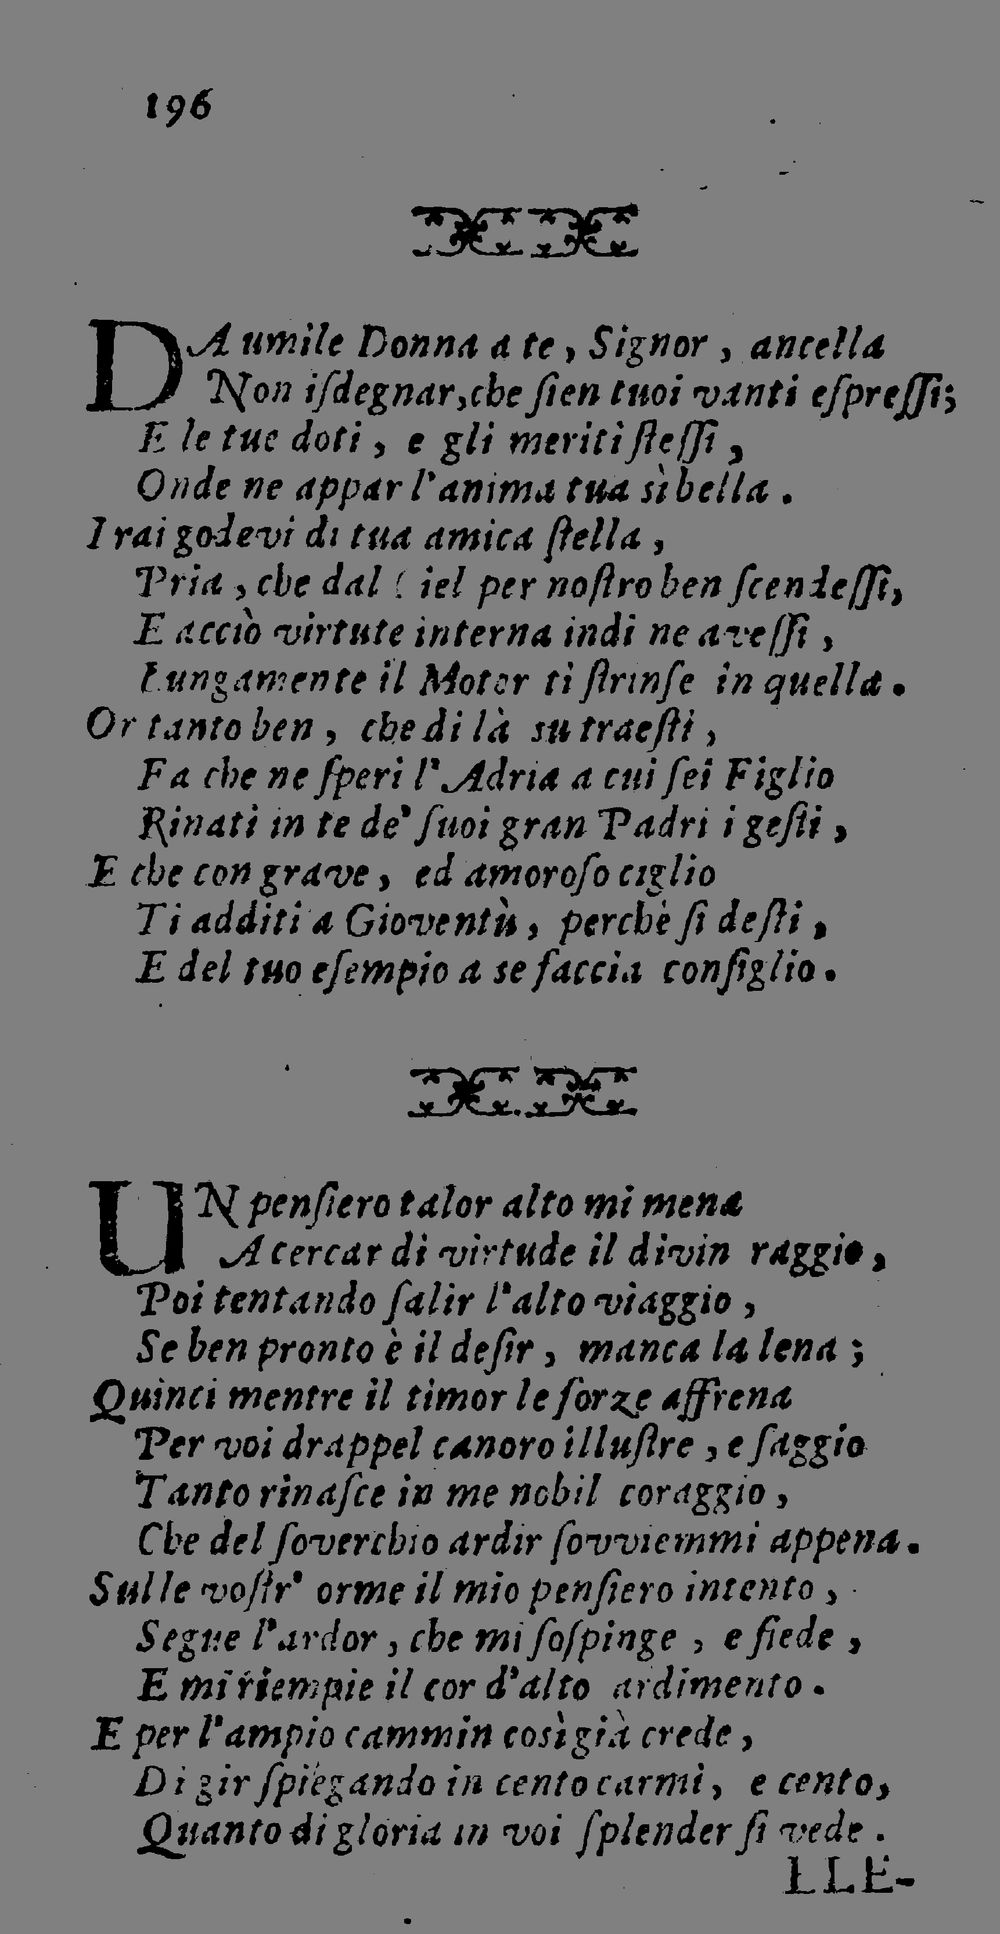 196
DA umile Donna a te, Signor, ancella
Non iſdegnar, che ſien tuoi vanti eſpreſſi;
E le tue doti, e gli meriti ſteſſi,
Onde ne appar l'anima tua sì bella.
I rai godevi di tua amica ſtella,
Pria, che dal Ciel per noſtro ben ſcendeſſi,
E acciò virtute interna indi ne aveſſi,
Lungamente il Motor ti ſtrinſe in quella.
Or tanto ben, che di là su traeſti,
Fa che ne ſperi l'Adria a cui ſei Figlio
Rinati in te de' ſuoi gran Padri i geſti,
E che con grave, ed amoroſo ciglio
Ti additi a Gioventù, perchè ſi deſti,
E del tuo eſempio a se faccia conſiglio.
UN penſiero talor alto mi mena
A cercar di virtude il divin raggio,
Poi tentando ſalir l'alto viaggio,
Se ben pronto è il deſir, manca la lena;
Quinci mentre il timor le forze affrena
Per voi drappel canoro illuſtre, e ſaggio
Tanto rinaſce in me nobil coraggio,
Che del ſoverchio ardir ſovviemmi appena.
Sulle voſtr' orme il mio penſiero intento,
Segue l'ardor, che mi ſoſpinge, e fiede,
E mi riempie il cor d'alto ardimento.
E per l'ampio cammin così già crede,
Di gir ſpiegando in cento carmi, e cento,
Quanto di gloria in voi ſplender ſi vede.
LLE-